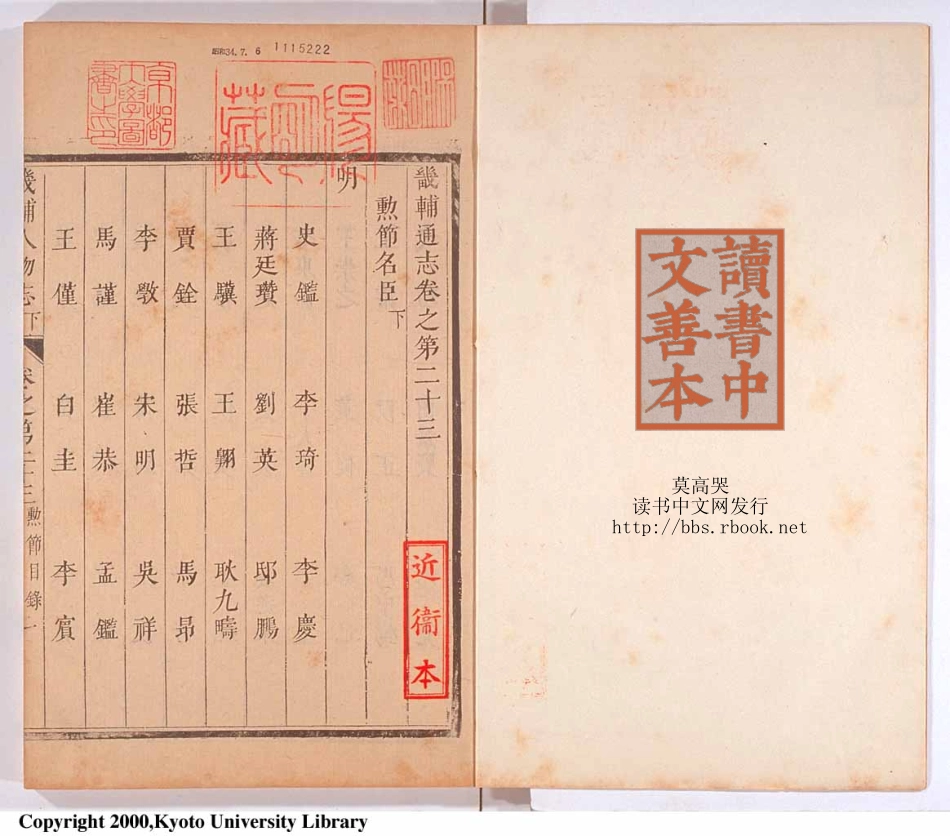 昭和34.7.6 1115222
京都
大學圖
書之印
陽明
藏
畿輔通志卷之第二十三
勲節名臣下
明
史鑑 李琦 李慶
蔣廷瓚 劉英 邸鵬
王驥 王翺 耿九疇
賈銓 張哲 馬昻
李斆 宋明 吳祥
馬謹 崔恭 孟鑑
王僅 白圭 李賔
畿輔人物志下 卷之第二十三 勲節目錄 一
近衞本
讀書中
文善本
莫高哭
读书中文网发行
http://bbs.rbook.net
Copyright 2000,Kyoto University Library